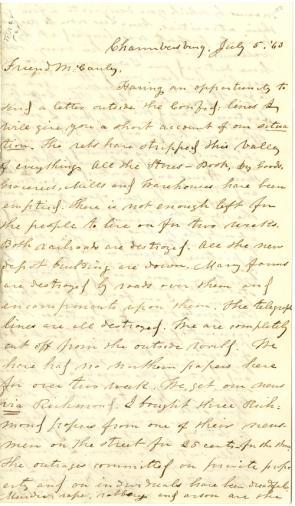 Chambersburg, July 5, '63
Friend McCauley,
Having an opportunity to
send a letter outside the Confed. lines I
will give you a short account of our situa
tion. The rebs have stripped this Valley
of everything. All the Stores - Book, Dry Goods
Groceries, Mills and Warehouses have been
emptied. There is not enough left for
the people to live on for two weeks.
Both railroads are destroyed. All the new
depot building are down. Many farms
are destroyed by roads over them and
encampments upon them. The telegraph
lines are all destroyed. We are completely
cut off from the outside world. We
have had no northern papers here
for over two week. We get our news
via Richmond. I bought three Rich-
mond papers from one of their news
men on the street for 25 cents for the three
The outrages committed on private prop
erty and on individuals have been dreadful.
Murder, rape, robbery and arson are the